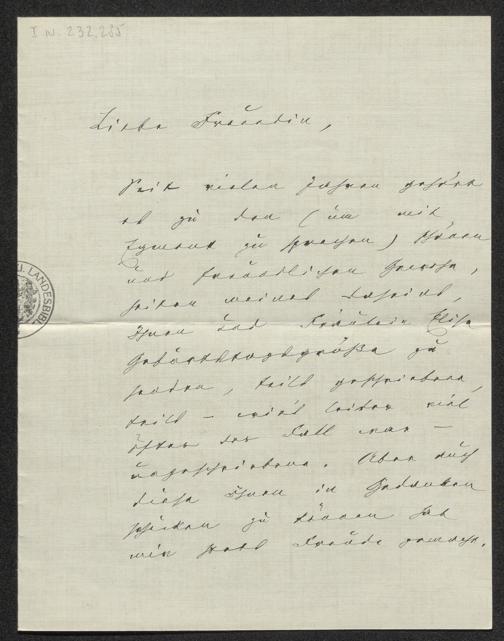 I.N. 232.285
Liebe Freundin,
Seit vielen Jahren gehört
es zu den (um mit
Egmont zu sprechen) schönen
und freundlichen Gewohn,
heiten meines Daseins,
Ihnen und Fräulein Elise
Geburtstagsgrüße zu
senden, teils geschriebene,
teils – wie's leider viel
öfter der Fall war –
ungeschriebene. Aber auch
diese Ihnen in Gedanken
schicken zu können hat
mir stets Freude gemacht.
U. LANDESBIBL